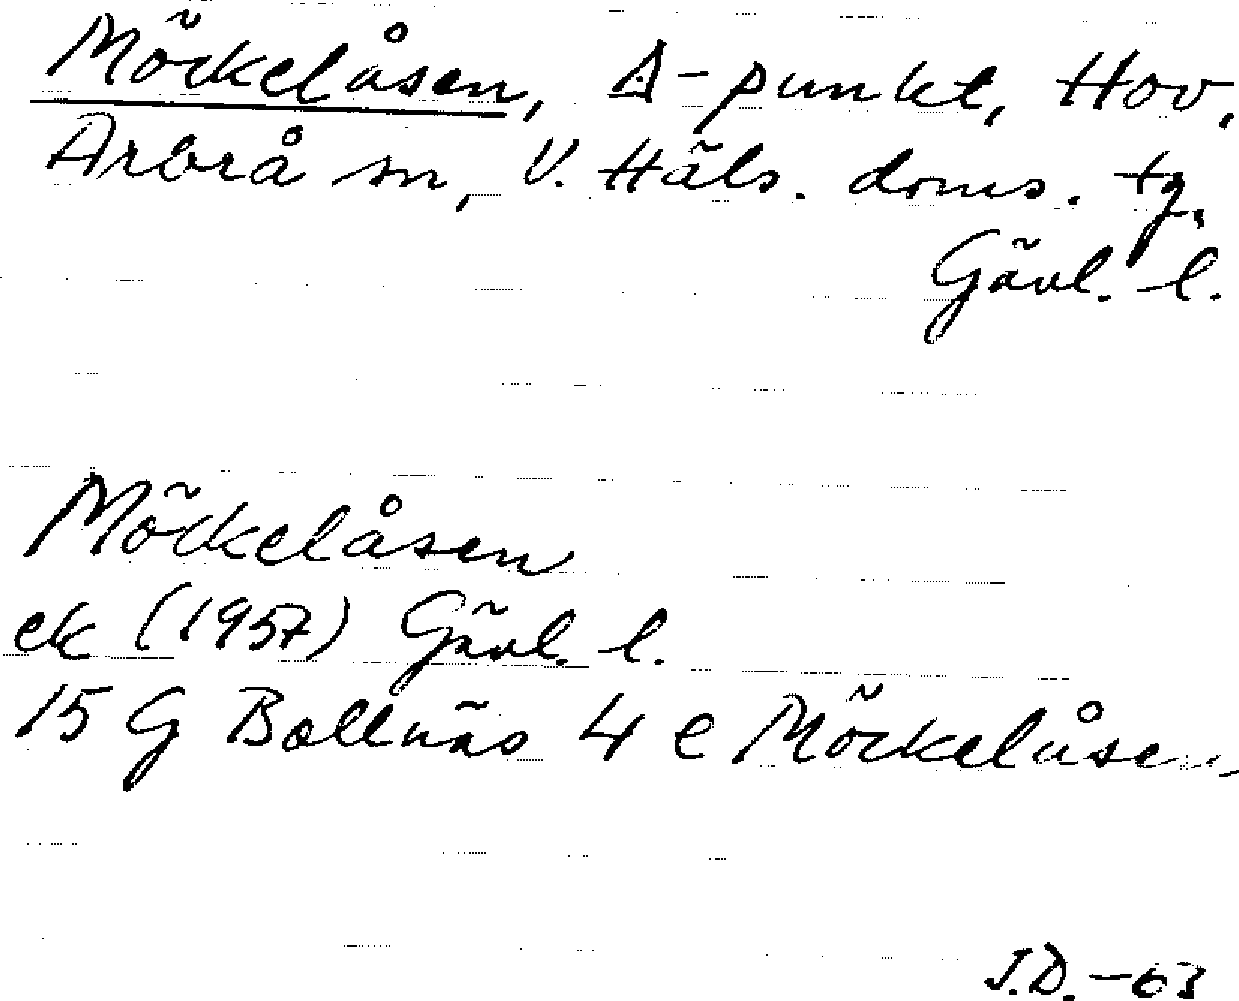 Möckelåsen, Δ-punkt, Hov,
Arbrå sn, V. Häls. doms. tg.
Gävl. l.
Möckelåsen
ek (1957) Gävl. l.
15 G Bollnäs 4 e Möckelåsen
J.D. -63